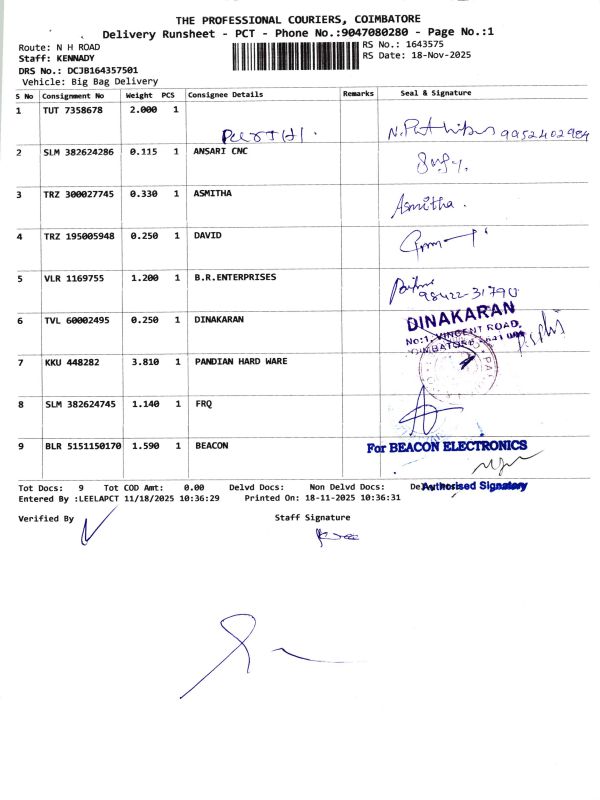 THE PROFESSIONAL COURIERS, COIMBATORE
Delivery Runsheet - PCT - Phone No.:9047080280 - Page No.:1
Route: N H ROAD
RS No.: 1643575
Staff: KENNADY
RS Date: 18-Nov-2025
DRS No.: DCJB164357501
Vehicle: Big Bag Delivery
S No Consignment No Weight PCS Consignee Details Remarks Seal & Signature
1 TUT 7358678 2.000 1
9952402984
2 SLM 382624286 0.115 1 ANSARI CNC
3 TRZ 300027745 0.330 1 ASMITHA Asmitha.
4 TRZ 195005948 0.250 1 DAVID
5 VLR 1169755 1.200 1 B.R.ENTERPRISES
98422-31790
6 TVL 60002495 0.250 1 DINAKARAN DINAKARAN
No:1, VINCENT ROAD,
7 KKU 448282 3.810 1 PANDIAN HARD WARE
8 SLM 382624745 1.140 1 FRQ
9 BLR 5151150170 1.590 1 BEACON For BEACON ELECTRONICS
Tot Docs: 9 Tot COD Amt: 0.00 Delvd Docs: Non Delvd Docs: Authorised Signatory
Entered By :LEELAPCT 11/18/2025 10:36:29 Printed On: 18-11-2025 10:36:31
Verified By Staff Signature